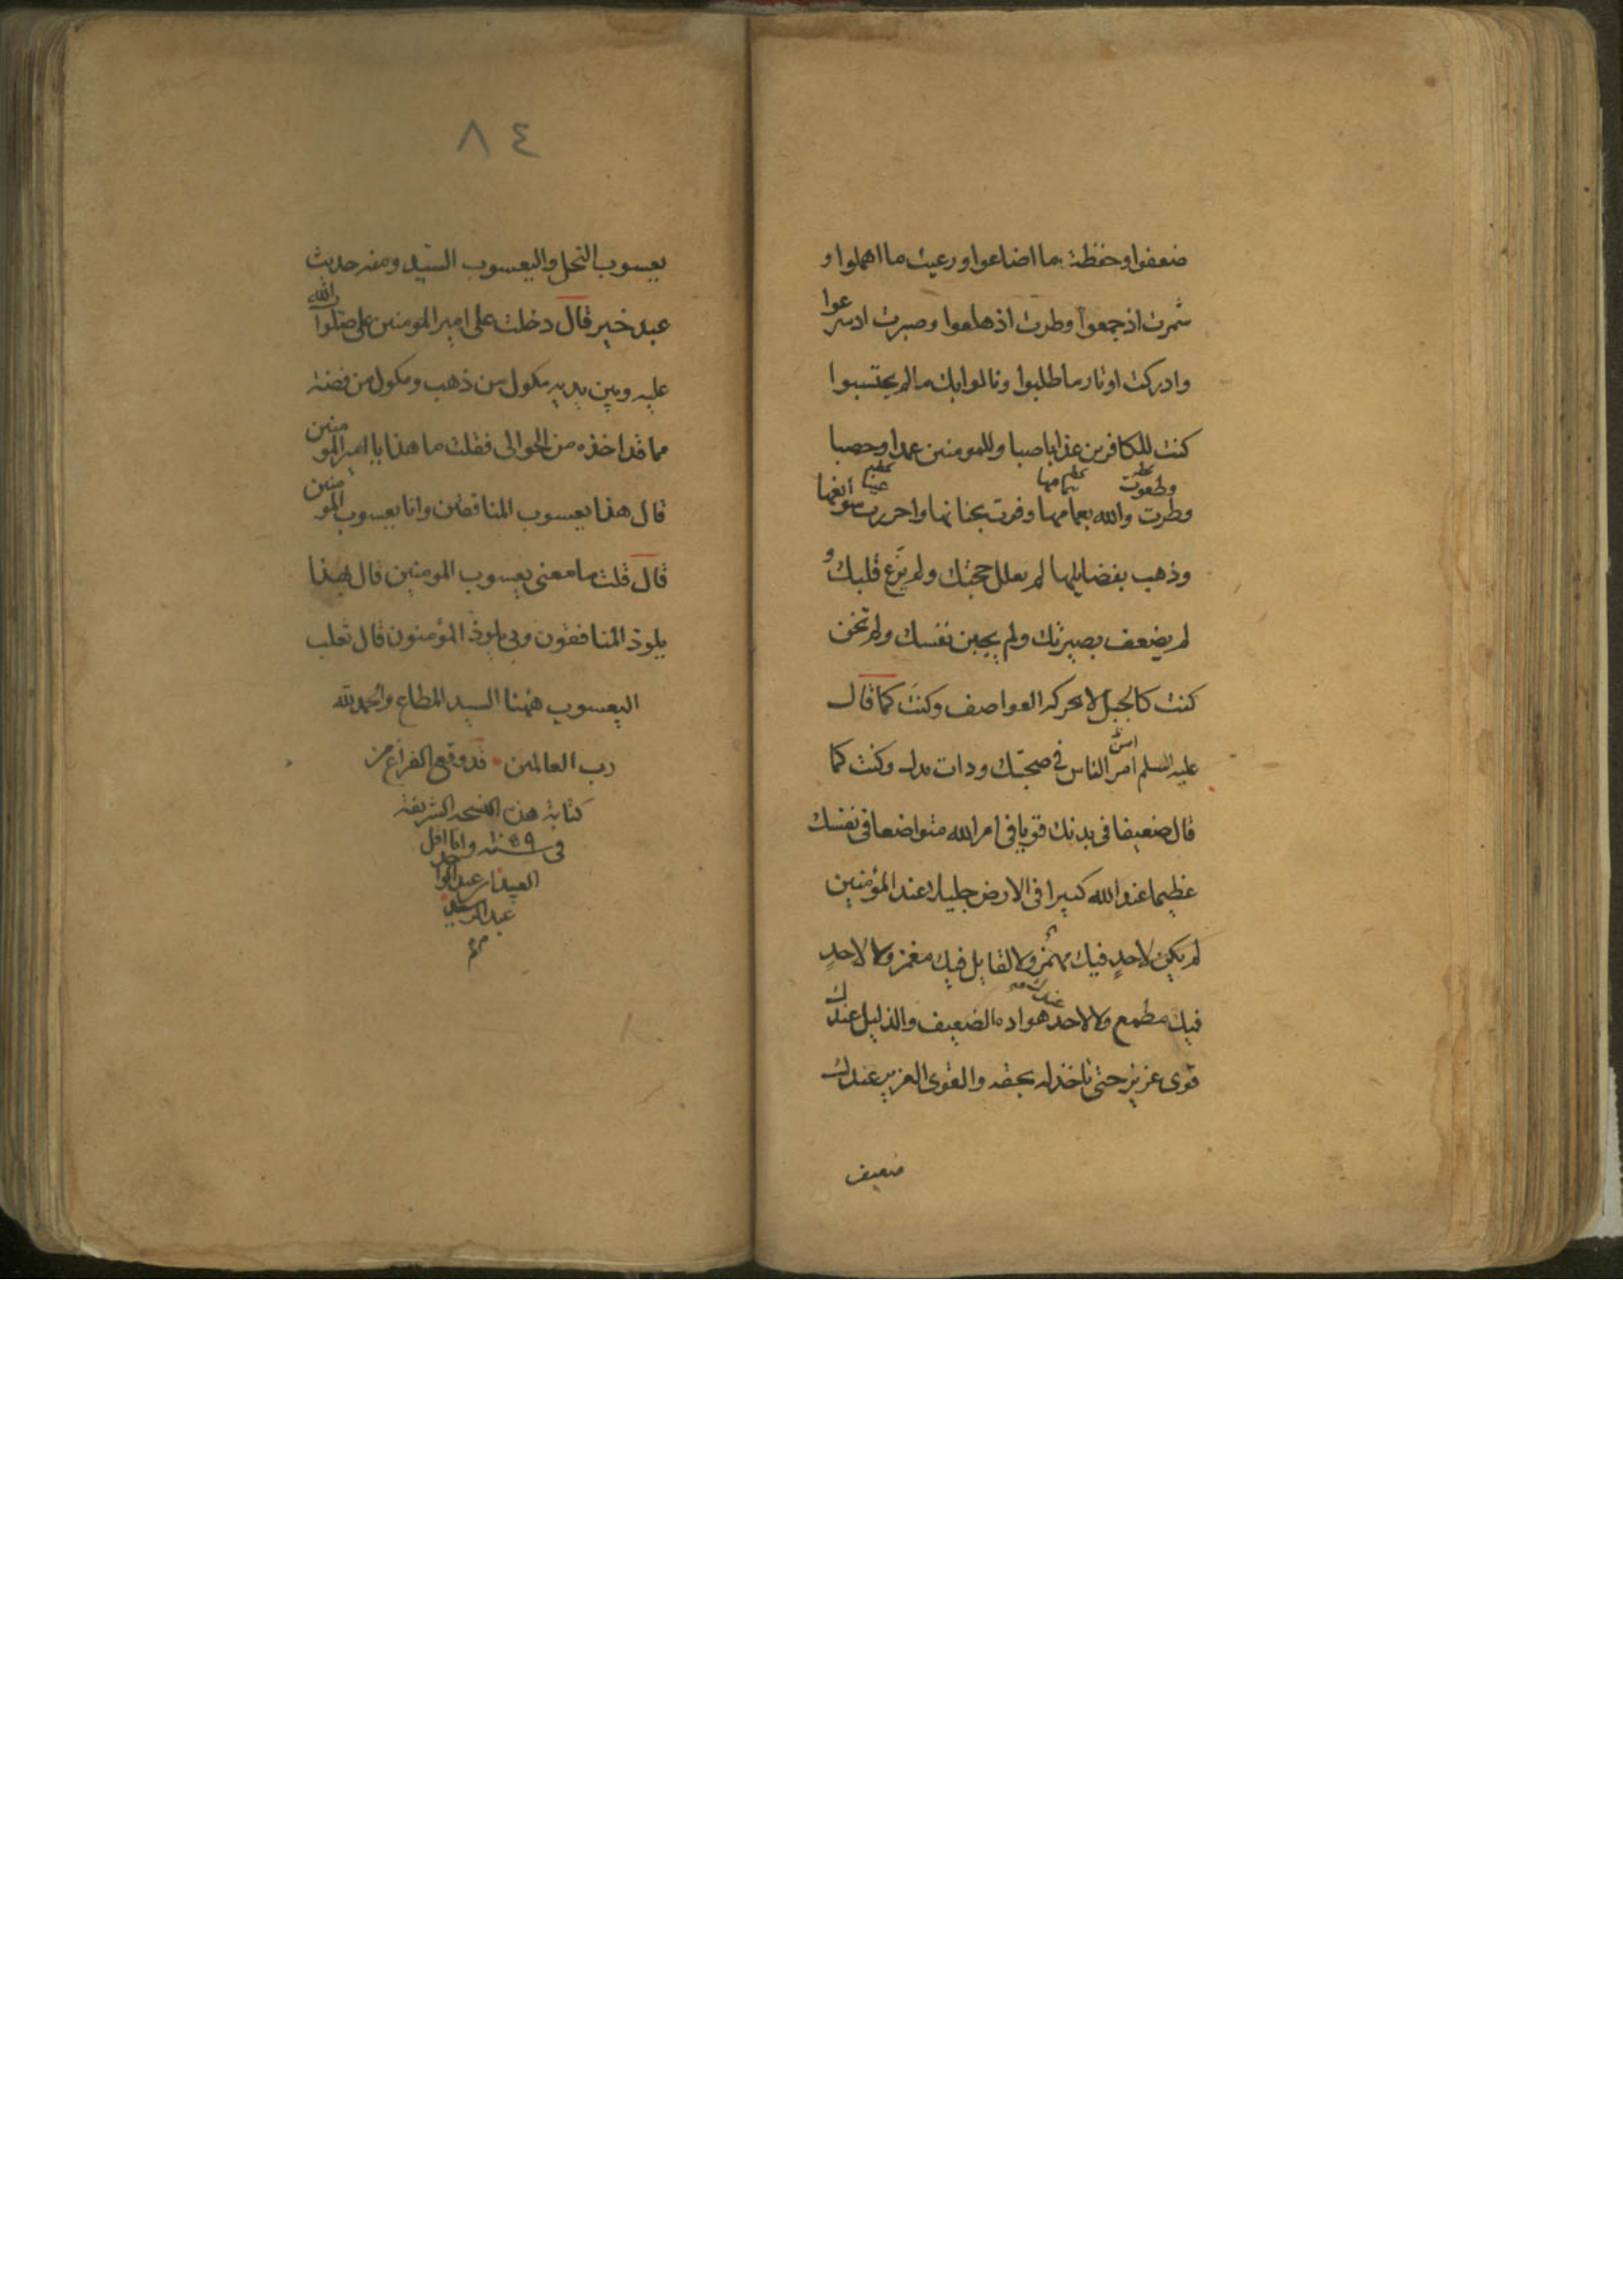 ضعفوا وحفظت ما اضاعوا ورعيت ما اهملوا و
شمرت اذ جمعوا وطرت اذ هلعوا وصبرت اذ سرعوا
وادركت اوتار ما طلبوا ونالوا بك ما لم يحتسبوا
كنت للكافرين عذابا صبا وللمومنين عمدا وحصبا
وطرت والله بعمامها وفزت بحنانها واحرزت سوابقها
وذهب بفضايلها لم يعلل حجتك ولم يزغ قلبك و
لم يضعف بصيرتك ولم يجبن نفسك ولم تخن
كنت كالجبل لا تحركه العواصف وكنت كما قال
عليه السلم امن الناس في صحبتك وذات يدك وكنت كما
قال ضعيفا في بدنك قويا في امر الله متواضعا في نفسك
عظيما عند الله كبيرا في الارض جليلا عند المؤمنين
لم يكن لاحدٍ فيك مهمز ولا لقايل فيك مغمز ولا لاحدٍ
فيك مطمع ولا لاحد عندك هواده الضعيف والذليل عندك
قوى عزيز حتى تاخذ له بحقه والقوى العزيز عندك
ضعيف
٨٤
يعسوب النحل واليعسوب السيد ومنه حديث
عبد خير قال دخلت على امير المومنين على صلوات الله
عليه وبين يديه مكول من ذهب ومكول من فضة
مما قد اخذه من الحوالى فقلت ما هذا يا امير المومنين
قال هذا يعسوب المنافقين وانا يعسوب المومنين
قال قلت ما معنى يعسوب المومنين قال بهذا
يلوذ المنافقون وبي يلوذ المؤمنون قال ثعلب
اليعسوب ههنا السيد المطاع والحمد لله
رب العالمين قد وقع الفراغ من
كتابة هذه النسخه الشريفة
في سنه ١٠٥٩ وانا اقل
العباد عبد الواحد
عبد الرشيد